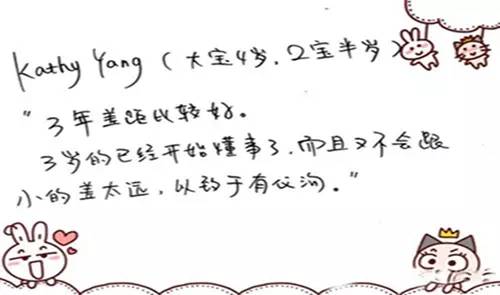 Kathy Yang (大宝4岁，2宝半岁)
"3年差距比较好。
3岁的已经开始懂事了，而且又不会跟
小的差太远，以致于有代沟。"